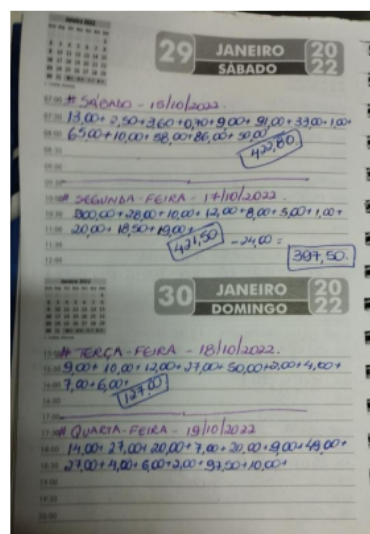 29 JANEIRO 2022
SÁBADO
# SÁBADO - 15/10/2022.
13,00+ 2,50+3,60+0,70+9,00+ 91,00+ 33,00+1,00+
65,00+10,00+58,00+86,00+50,00
422,80
# SEGUNDA-FEIRA - 17/10/2022.
300,00+28,00+10,00+12,00+8,00+5,00+1,00+
20,00+ 18,50+19,00+
421,50 - 24,00 =
397,50.
30 JANEIRO 2022
DOMINGO
# TERÇA-FEIRA - 18/10/2022.
9,00+ 10,00+12,00+27,00+50,00+2,00+4,00+
7,00+6,00+
127,00
# QUARTA-FEIRA - 19/10/2022
14,00+27,00+20,00+7,00+20,00+9,00+49,00+
27,00+4,00+6,00+2,00+97,50+10,00+